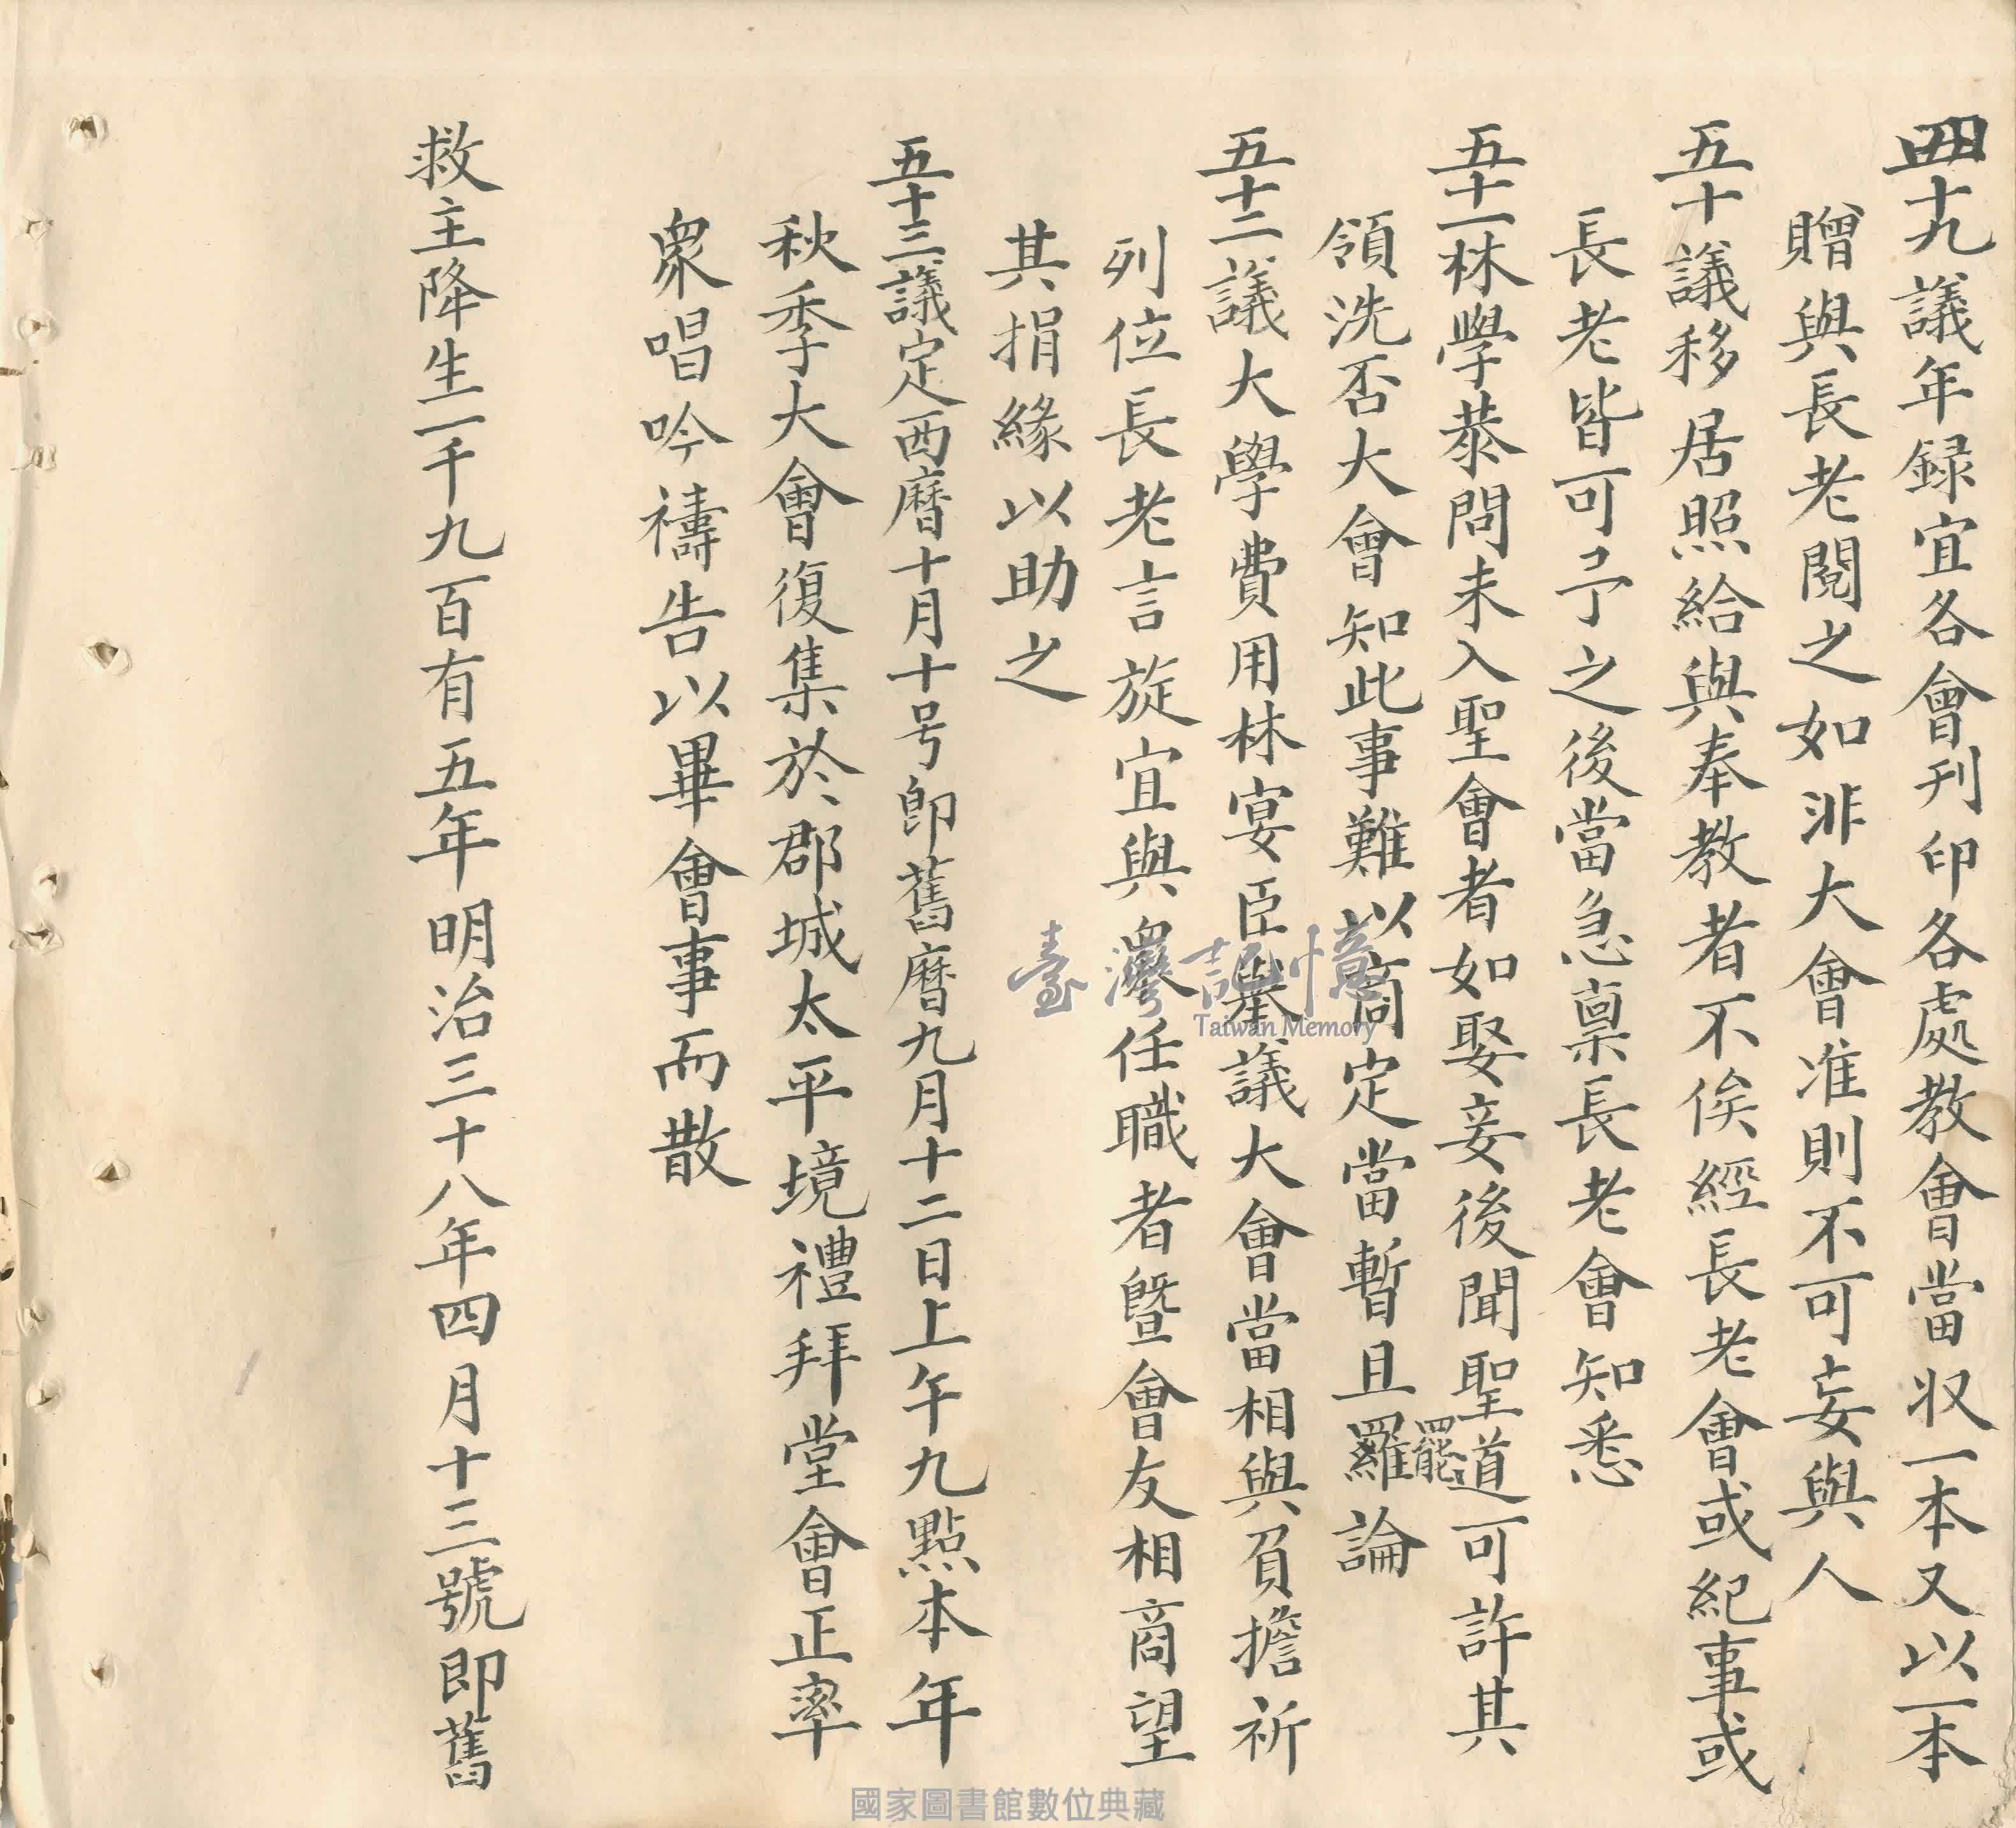 四十九議年録宜各會刊印各處教會當収一本又以一本
贈與長老閱之如非大會准則不可妄與人
五十議移居照給與奉教者不俟經長老會或紀事或
長老皆可予之後當急稟長老會知悉
五十一林學恭問未入聖會者如娶妾後聞聖道可許其
領洗否大會知此事難以商定當暫且羅論
罷
五十二議大學費用林宴臣舉議大會當相與負擔祈
列位長老言旋宜與眾任職者暨會友相商望
其捐緣以助之
五十三議定西曆十月十号即舊曆九月十二日上午九點本年
秋季大會復集於郡城太平境禮拜堂會正率
眾唱吟禱告以畢會事而散
救主降生一千九百有五年明治三十八年四月十三號即舊
臺灣記憶
Taiwan Memory
國家圖書館數位典藏